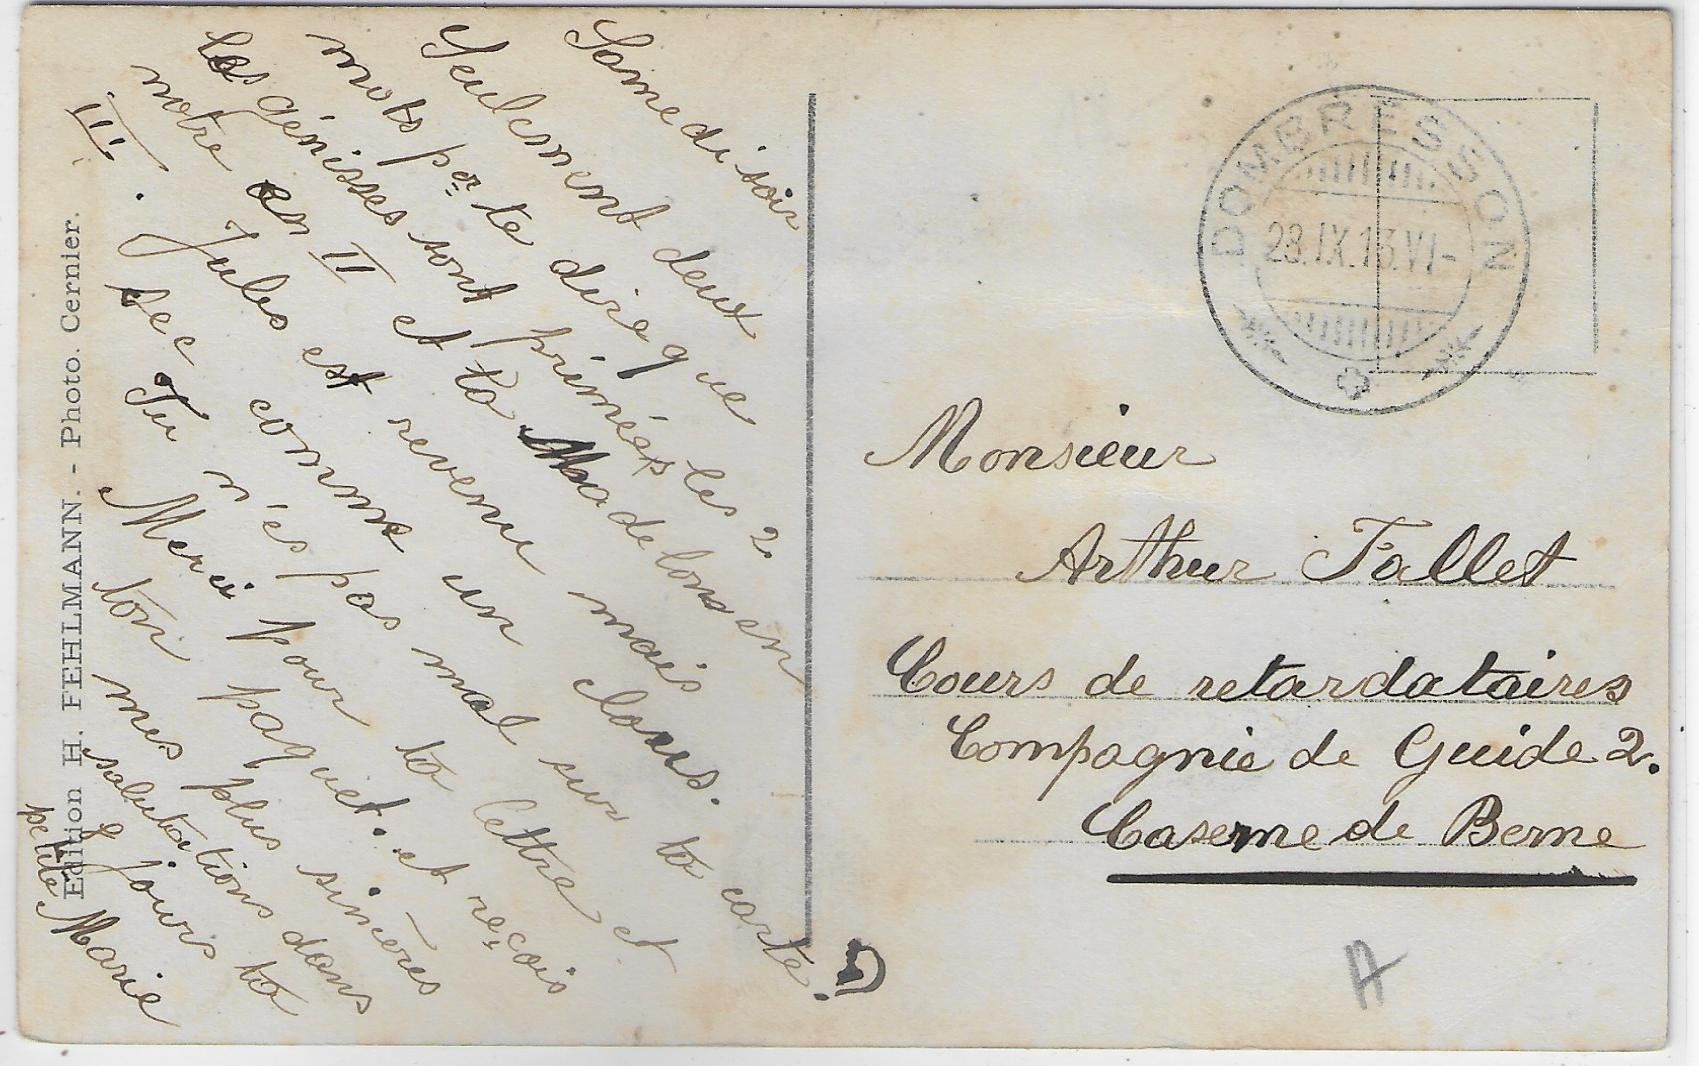 Samedi soir
Seulement deux
mots pr te dire que
les génisses sont primées les 2
notre en II et ta Madelon en
III. Jules est revenu mais
sec comme un clous.
Tu n'es pas mal sur ta carte.
Merci pour ta lettre et
ton paquet. et reçois
mes plus sinères
salutations dans
8 jours ta
petite Marie
Edition H. FEHLMANN. - Photo. Cernier.
DOMBRESSON
28.IX.13.VI-
Monsieur
Arthur Fallet
Cours de retardataires
Compagnie de Guide 2.
Caserne de Berne
A